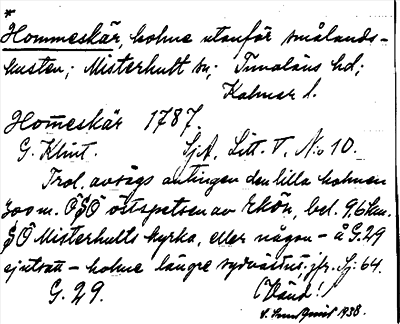 *
Hommeskär, holme utanför smålands-
kusten; Misterhult sn; Tunaläns hd;
Kalmar l.
Hom̅eskär 1787.
G. Klint. SjA, Litt. V, No 10.
Trol. avsägs antingen den lilla holmen
300 m. OSO östspetsen av Ekön, bel. 9,6 km.
SO Misterhults kyrka, eller någon – å G.29
ej utsatt – holme längre sydvästut, jfr. Sj. 64.
G. 29. (Vänd!)
1938.